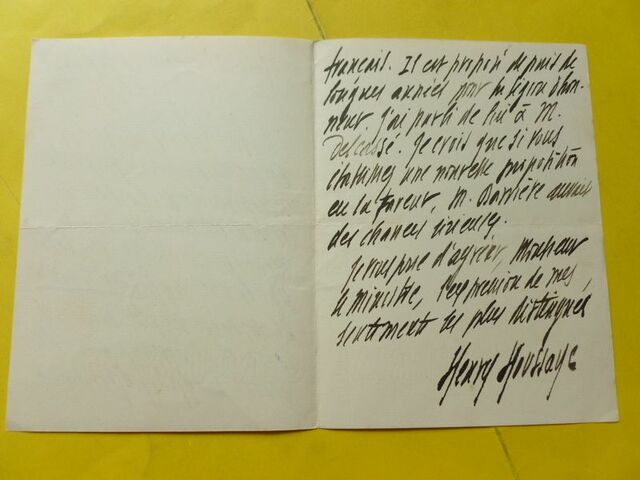 français. Il est proposé depuis de
longues années pour la légion d'hon-
neur. J'ai parlé de lui à M.
Delcassé. Je crois que si vous
une nouvelle proposition
en sa faveur, M. Barrière aurait
des chances sérieuses.
Je vous prie d'agréer, Monsieur
le ministre, l'expression de mes
sentiments les plus distingués
Henry Houssaye